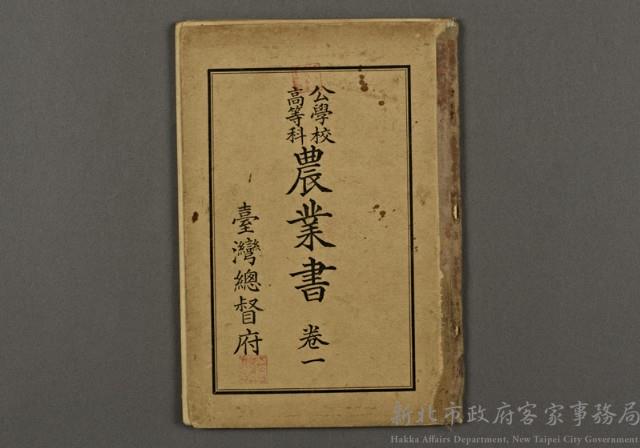 公學校
高等科
農業書 卷一
臺灣總督府
新北市政府客家事務局
Hakka Affairs Department, New Taipei City Government